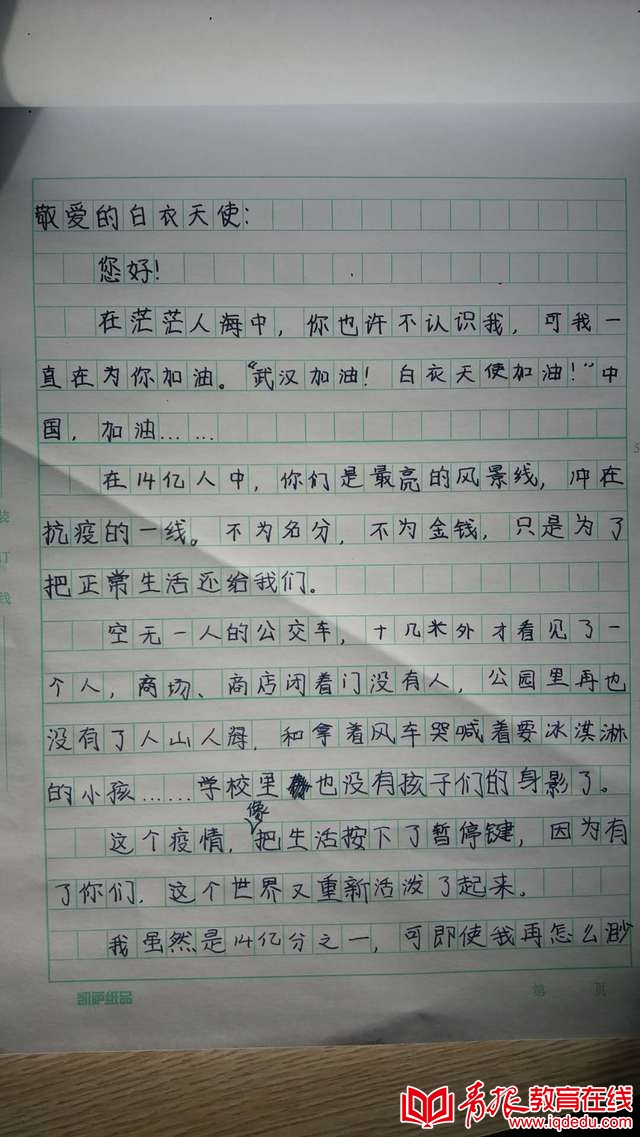 敬爱的白衣天使:
您好!
在茫茫人海中,你也许不认识我,可我一
直在为你加油。“武汉加油!白衣天使加油!”中
国,加油……
在14亿人中,你们是最亮的风景线,冲在
抗疫的一线。不为名分,不为金钱,只是为了
把正常生活还给我们。
空无一人的公交车,十几米外才看见了一
个人,商场、商店闭着门没有人,公园里再也
没有了人山人海,和拿着风车哭喊着要冰淇淋
的小孩……学校里也没有孩子们的身影了。
这个疫情,像把生活按下了暂停键,因为有
了你们,这个世界又重新活泼了起来。
我虽然是14亿分之一,可即使我再怎么渺
凯萨纸品
第 页
装
订
线
5
青报教育在线
www.iqdedu.com